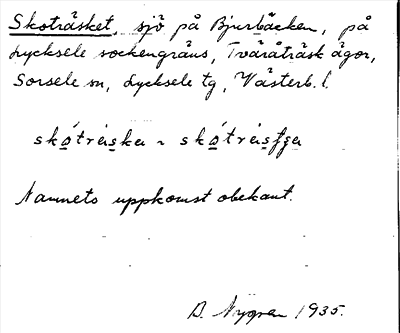 Skoträsket, sjö på Bjurbäcken, på
Lycksele sockengräns, Tväråträsk ägor,
Sorsele sn, Lycksele tg, Västerb. l.
skó̲träs̲ka ~ skó̲träs̲ʃʃa
Namnets uppkomst obekant.
D. Nygren 1935.